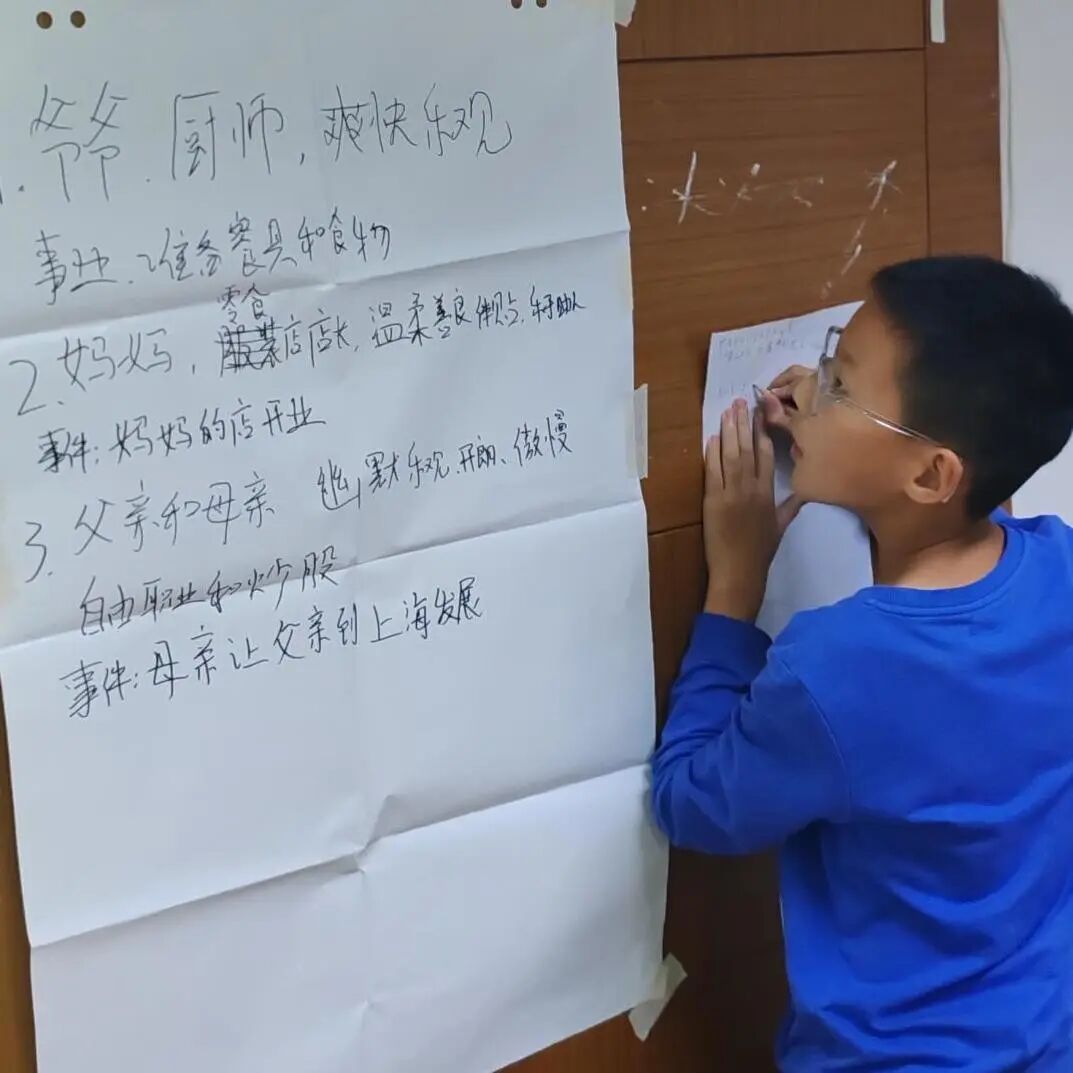 1. 爷爷. 厨师, 爽快乐观
事业. 准备餐具和食物
零食
2. 妈妈, 店店长, 温柔善良体贴, 乐于助人
事件: 妈妈的店开业
3. 父亲和母亲 幽默乐观 开朗、傲慢
自由职业和炒股
事件: 母亲让父亲到上海发展